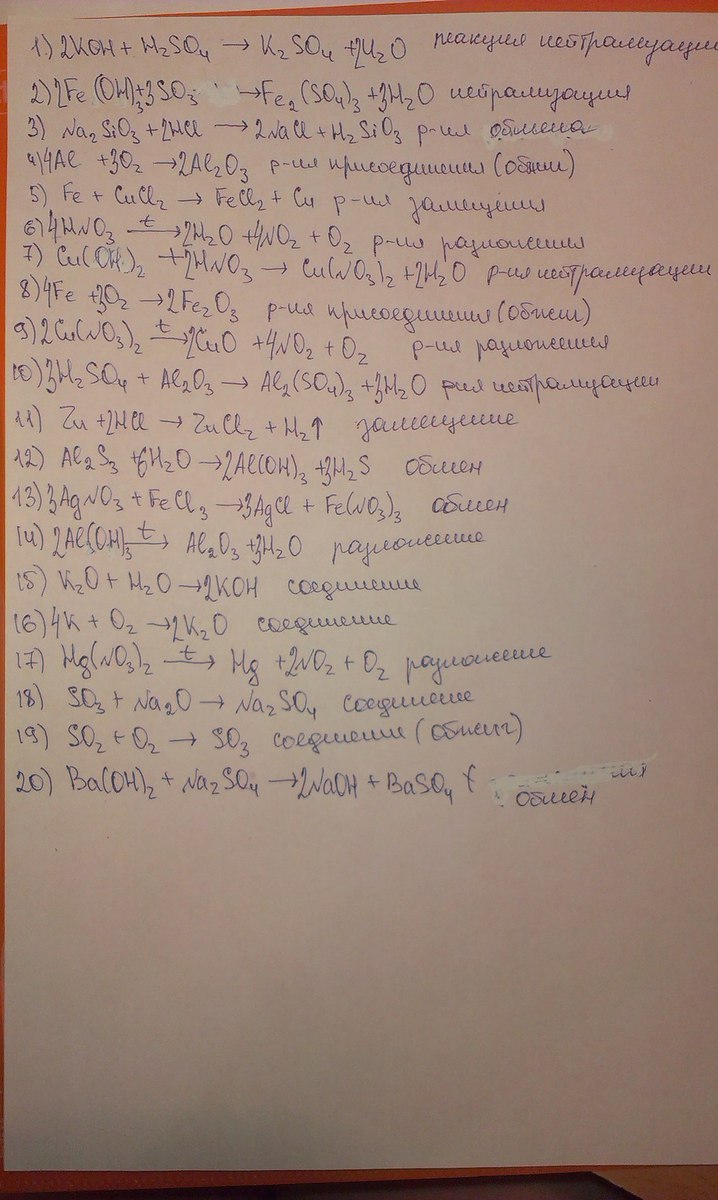 1) 2KOH + H₂SO₄ → K₂SO₄ + 2H₂O реакция нейтрализации
2) 2Fe(OH)₃+3SO₃ → Fe₂(SO₄)₃ + 3H₂O нейтрализация
3) Na₂SiO₃ + 2HCl → 2NaCl + H₂SiO₃ р-ия обмена
4) 4Al + 3O₂ → 2Al₂O₃ р-ия присоединения (обжиг)
5) Fe + CuCl₂ → FeCl₂ + Cu р-ия замещения
6) 4HNO₃ t→ 2H₂O + 4NO₂ + O₂ р-ия разложения
7) Cu(OH)₂ + 2HNO₃ → Cu(NO₃)₂ + 2H₂O р-ия нейтрализации
8) 4Fe + 3O₂ → 2Fe₂O₃ р-ия присоединения (обжиг)
9) 2Cu(NO₃)₂ t→ 2CuO + 4NO₂ + O₂ р-ия разложения
10) 3H₂SO₄ + Al₂O₃ → Al₂(SO₄)₃ + 3H₂O р-ия нейтрализации
11) Zn + 2HCl → ZnCl₂ + H₂↑ замещение
12) Al₂S₃ + 6H₂O → 2Al(OH)₃ + 3H₂S обмен
13) 3AgNO₃ + FeCl₃ → 3AgCl + Fe(NO₃)₃ обмен
14) 2Al(OH)₃ t→ Al₂O₃ + 3H₂O разложение
15) K₂O + H₂O → 2KOH соединение
16) 4K + O₂ → 2K₂O соединение
17) Hg(NO₃)₂ t→ Hg + 2NO₂ + O₂ разложение
18) SO₃ + Na₂O → Na₂SO₄ соединение
19) SO₂ + O₂ → SO₃ соединение (обжиг)
20) Ba(OH)₂ + Na₂SO₄ → 2NaOH + BaSO₄ обмен